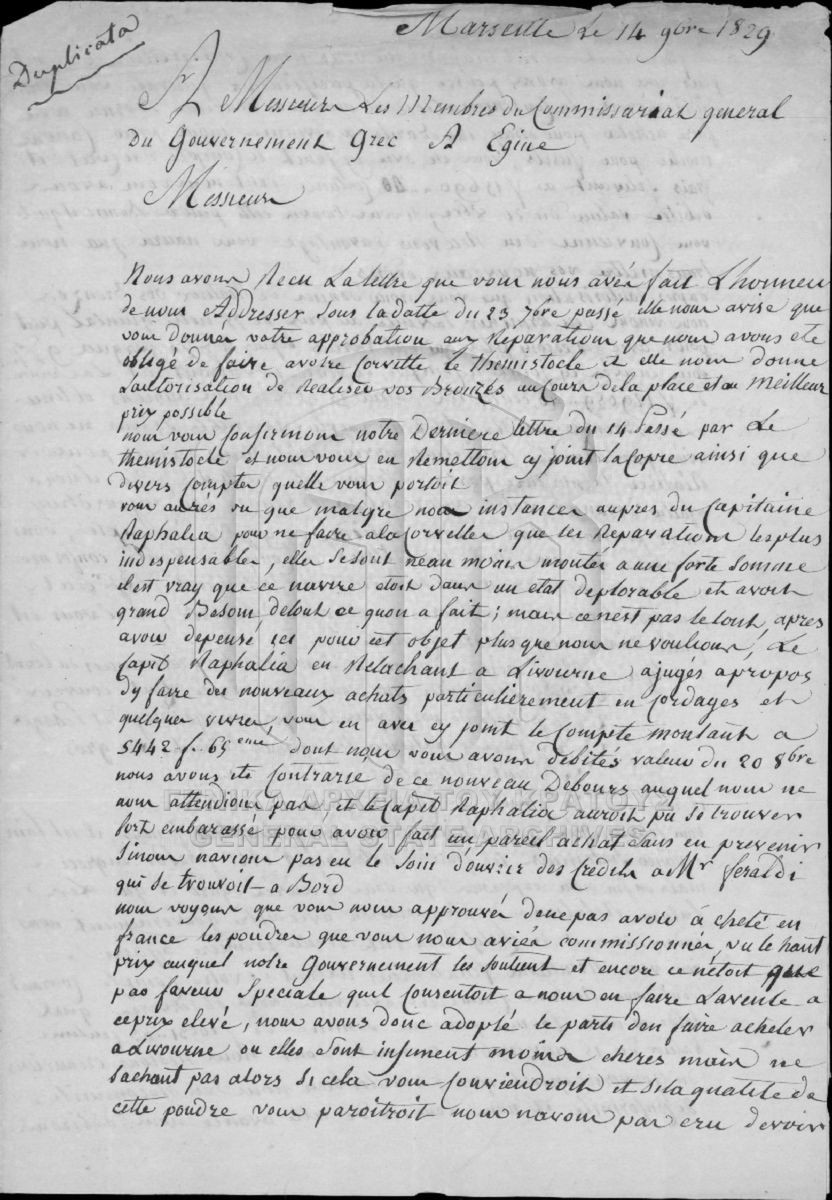 Marseille Le 14 9bre 1829
Duplicata
A Messieurs Les Membres du Commissariat general
Du Gouvernement Grec A Egine
Messieurs
Nous avons Recu La lettre que vous nous avés fait L'honneur
de nous Addresser sous la datte du 23 7bre passé elle nous avise que
vous donnés votre approbation aux Réparations que nous avons ete
obligé de faire a votre Corvette le Themistocle et elle nous donne
L'autorisation de Realiser vos Bronzes au Cours de la place et au Meilleur
prix possible
nous vous Confirmons notre Derniere lettre du 14 Passé par Le
themistocle et nous vous en Remettons cy joint la Copie ainsi que
divers Comptes quelle vous portoit
vous aurés vu que malgre nos instances aupres du Capitaine
Raphalia pour ne faire a la Corvette que les Reparations les plus
indispensables, elles se sont neau moins montés a une forte somme
il est vray que ce navire etoit dans un etat deplorable et avoit
grand Besoin de tout ce quon a fait; mais ce n'est pas le tout, apres
avoir depensé ici pour cet objet plus que nous ne voulions, Le
Capit Raphalia en Relachant a Livourne a jugés apropos
d'y faire des nouveaux achats particulierement en Cordages et
quelques vivres, vous en avez cy joint le Compte montant a
5442 f. 65 eme dont nous vous avons débités valeur du 20 8bre
nous avons ete Contrarié de ce nouveau Debours auquel nous ne
nous attendions pas, et le Capit Raphalia auroit pu se trouver
fort embarassé pour avoir fait un pareil achat sans en prevenir
si nous navions pas eu le soin d'ouvrir des Credits a Mr feraldi
qui se trouvoit a Bord
nous voyons que vous nous approuvés de ne pas avoir acheté en
france les poudres que vous nous aviés commissionnés, vu le haut
prix auquel notre Gouvernement les soutient et encore ce n'etoit que
par faveur speciale quil Consentoit a nous en faire La vente a
ce prix elevé, nous avons donc adopté le parti d'en faire acheter
a Livourne ou elles sont infiment moins cheres mais ne
sachant pas alors si cela vous Conviendroit et si la qualité de
cette poudre vous paroitroit nous n'avons pas cru devoir
ΓΕΝΙΚΑ ΑΡΧΕΙΑ ΤΟΥ ΚΡΑΤΟΥΣ
GENERAL STATE ARCHIVES